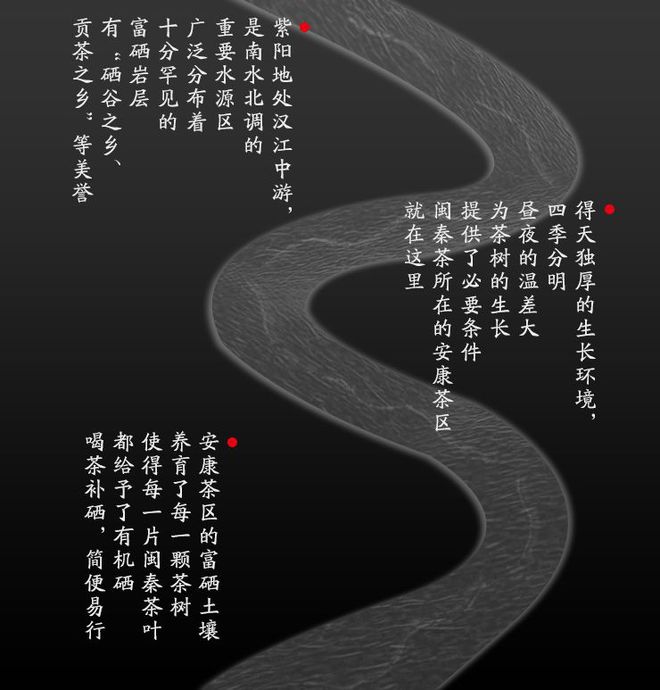 紫阳地处汉江中游，
是南水北调的
重要水源区
广泛分布着
十分罕见的
富硒岩层
有“硒谷之乡、
贡茶之乡”等美誉
得天独厚的生长环境，
四季分明
昼夜的温差大
为茶树的生长
提供了必要条件
闽秦茶所在的安康茶区
就在这里
安康茶区的富硒土壤
养育了每一颗茶树
使得每一片闽秦茶叶
都给予了有机硒
喝茶补硒，简便易行